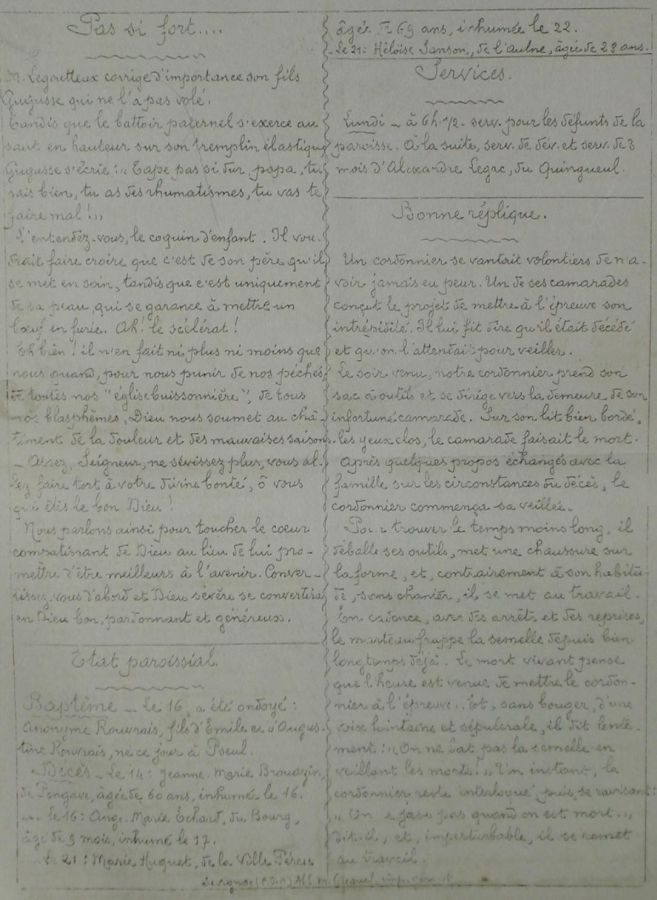 Pas si fort....
M. Legoutteux corrige d'importance son fils
Gugusse qui ne l'a pas volé.
Tandis que le battoir paternel s'exerce au
saut en hauteur sur son tremplin élastique
Gugusse s'écrie: "Tape pas si dur, papa, tu
sais bien, tu as des rhumatismes, tu vas te
faire mal!"
L'entendez-vous, le coquin d'enfant. Il vou-
drait faire croire que c'est de son père qu'il
se met en soin, tandis que c'est uniquement
de sa peau, qui se garance à mettre un
bœuf en furie. Ah! le scélérat!
Eh bien! il n'en fait ni plus ni moins que
nous quand, pour nous punir de nos péchés
de toutes nos "église buissonnière", de tous
nos blasphèmes, Dieu nous soumet au châ-
timent de la douleur et des mauvaises saisons.
- Assez, Seigneur, ne sévissez plus, vous al-
lez faire tort à votre divine bonté, ô vous
qui êtes le bon Dieu!
Nous parlons ainsi pour toucher le cœur
compatissant de Dieu au lieu de lui pro-
mettre d'être meilleurs à l'avenir. Conver-
tissez-vous d'abord et Dieu sévère se convertira
en Dieu bon, pardonnant et généreux.
Etat paroissial.
Baptême - le 16, a été ondoyé:
anonyme Rouvrais, fils d'Emile et d'Augus-
tine Rouvrais, né ce jour à
Décès - Le 14: Jeanne Marie Broudzin,
de Pengave, âgée de 60 ans, inhumée le 16.
le 16: Ang. Marie Echard, du Bourg,
âgé de 3 mois, inhumé le 17.
Le 21: Marie Huguet, de la Ville
âgée de 69 ans, inhumée le 22.
Le 21: Héloïse Janson, de l'Aulne, âgée de 28 ans.
Services.
Lundi - à 6h.1/2 - serv. pour les défunts de la
paroisse. A la suite, serv. de dév. et serv. de 8
mois d'Alexandre Legac, du Quingueul.
Bonne réplique.
Un cordonnier se vantait volontiers de n'a-
voir jamais eu peur. Un de ses camarades
conçut le projet de mettre à l'épreuve son
intrépidité. Il lui fit dire qu'il était décédé
et qu'on l'attendait pour veiller.
Le soir venu, notre cordonnier prend son
sac à outils et se dirige vers la demeure de son
infortuné camarade. Sur son lit bien bordé,
les yeux clos, le camarade faisait le mort.
Après quelques propos échangés avec la
famille sur les circonstances du décès, le
cordonnier commença sa veillée.
Pour trouver le temps moins long, il
déballe ses outils, met une chaussure sur
la forme, et, contrairement à son habitu-
de, sans chanter, il se met au travail.
En cadence, avec des arrêts et des reprises,
le marteau frappe la semelle depuis bien
longtemps déjà. Le mort vivant pense
que l'heure est venue de mettre le cordon-
nier à l'épreuve. Et, sans bouger, d'une
voix lointaine et sépulcrale, il dit lente-
ment: "On ne bat pas la semelle en
veillant les morts!" Un instant, le
cordonnier reste interloqué, puis, se ravisant:
"On jase pas quand on est mort",
dit-il, et, imperturbable, il se remet
au travail.